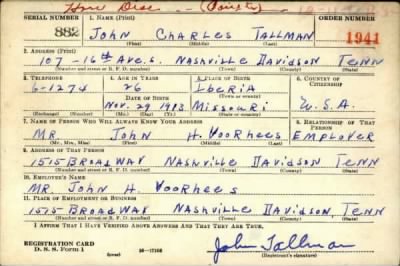 SERIAL NUMBER 1. NAME (Print) ORDER NUMBER
882 JOHN CHARLES TALLMAN 1941
(First) (Middle) (Last)
2. ADDRESS (Print)
107-16th Ave. S. NASHVILLE DAVIDSON TENN
(Number and street or R. F. D. number) (Town) (County) (State)
3. TELEPHONE 4. AGE IN YEARS 5. PLACE OF BIRTH 6. COUNTRY OF CITIZENSHIP
6-1274 26 IBERIA
DATE OF BIRTH (Town or county)
Nov. 29 Missouri U.S.A.
(Exchange) (Number) (Mo.) (Day) (Yr.) (State or country)
7. NAME OF PERSON WHO WILL ALWAYS KNOW YOUR ADDRESS 8. RELATIONSHIP OF THAT PERSON
MR. JOHN H. VOORHEES EMPLOYER
(Mr., Mrs., Miss) (First) (Middle) (Last)
9. ADDRESS OF THAT PERSON
1515 BROADWAY NASHVILLE DAVIDSON TENN
(Number and street or R. F. D. number) (Town) (County) (State)
10. EMPLOYER'S NAME
MR. JOHN H VOORHEES
11. PLACE OF EMPLOYMENT OR BUSINESS
1515 BROADWAY NASHVILLE DAVIDSON, TENN
(Number and street or R. F. D. number) (Town) (County) (State)
I AFFIRM THAT I HAVE VERIFIED ABOVE ANSWERS AND THAT THEY ARE TRUE.
John Tallman
REGISTRATION CARD
D. S. S. Form 1 (over) 16-17105 (Registrant's signature)